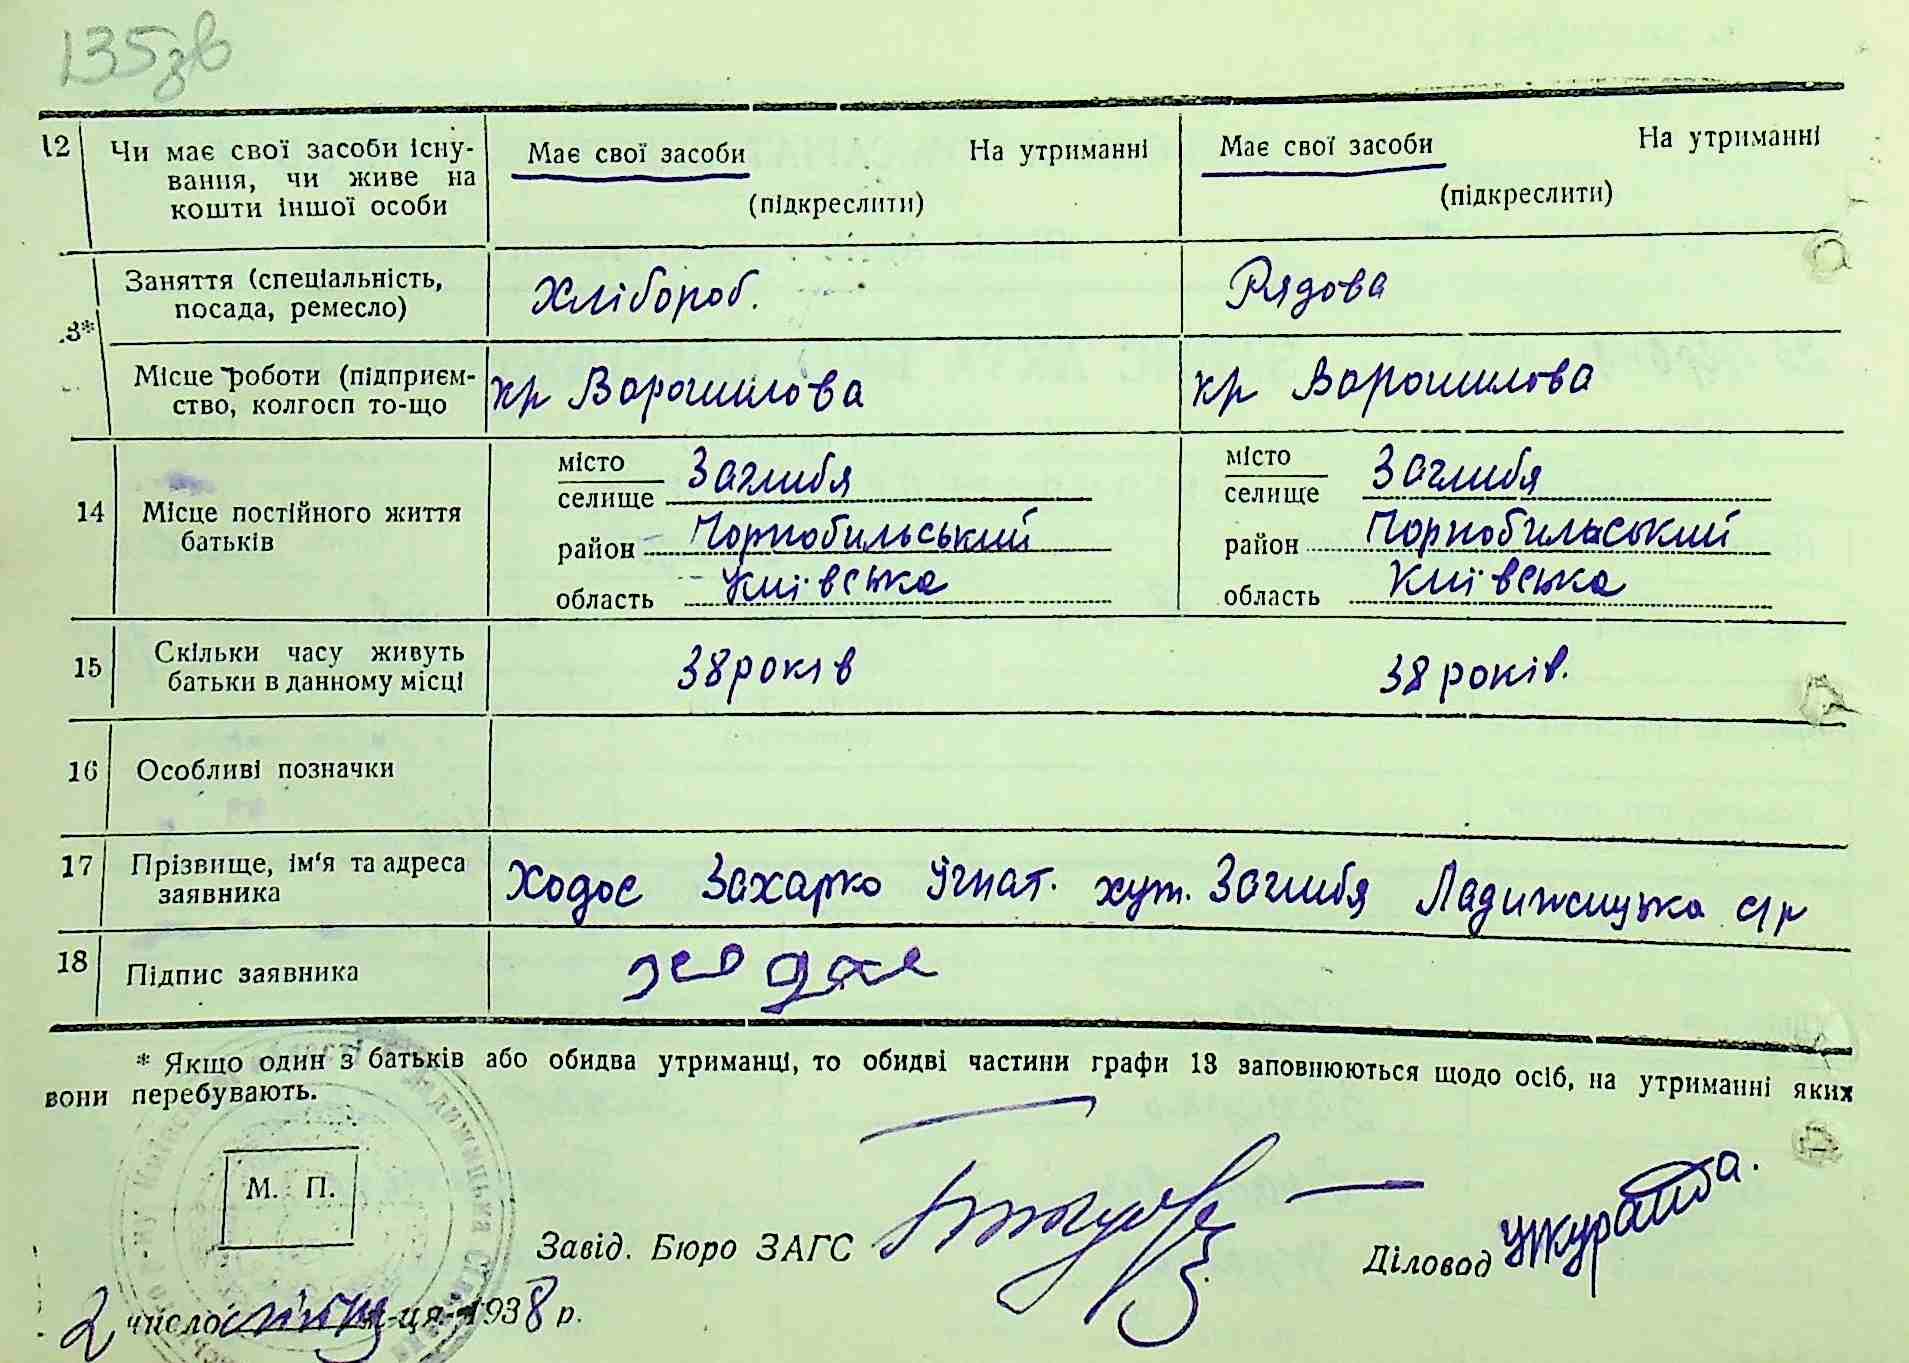 135зв
12 Чи має свої засоби існу-
вання, чи живе на
кошти іншої особи
Має свої засоби На утриманні
(підкреслити)
Має свої засоби На утриманні
(підкреслити)
3* Заняття (спеціальність,
посада, ремесло)
Хлібороб.
Рядова
Місце роботи (підприєм-
ство, колгосп то-що
кр Ворошилова
кр Ворошилова
14 Місце постійного життя
батьків
місто
селище Заглибя
район Чорнобильський
область Київська
місто
селище Заглибя
район Чорнобильський
область Київська
15 Скільки часу живуть
батьки в данному місці
38 років
38 років.
16 Особливі позначки
17 Прізвище, ім'я та адреса
заявника
Ходос Захарко Ігнат. хут. Заглибя Ладижицька с/р
18 Підпис заявника
* Якщо один з батьків або обидва утриманці, то обидві частини графи 13 заповнюються щодо осіб, на утриманні яких
вони перебувають.
М. П.
Завід. Бюро ЗАГС
Діловод
2 число січня м-ця 1938 р.